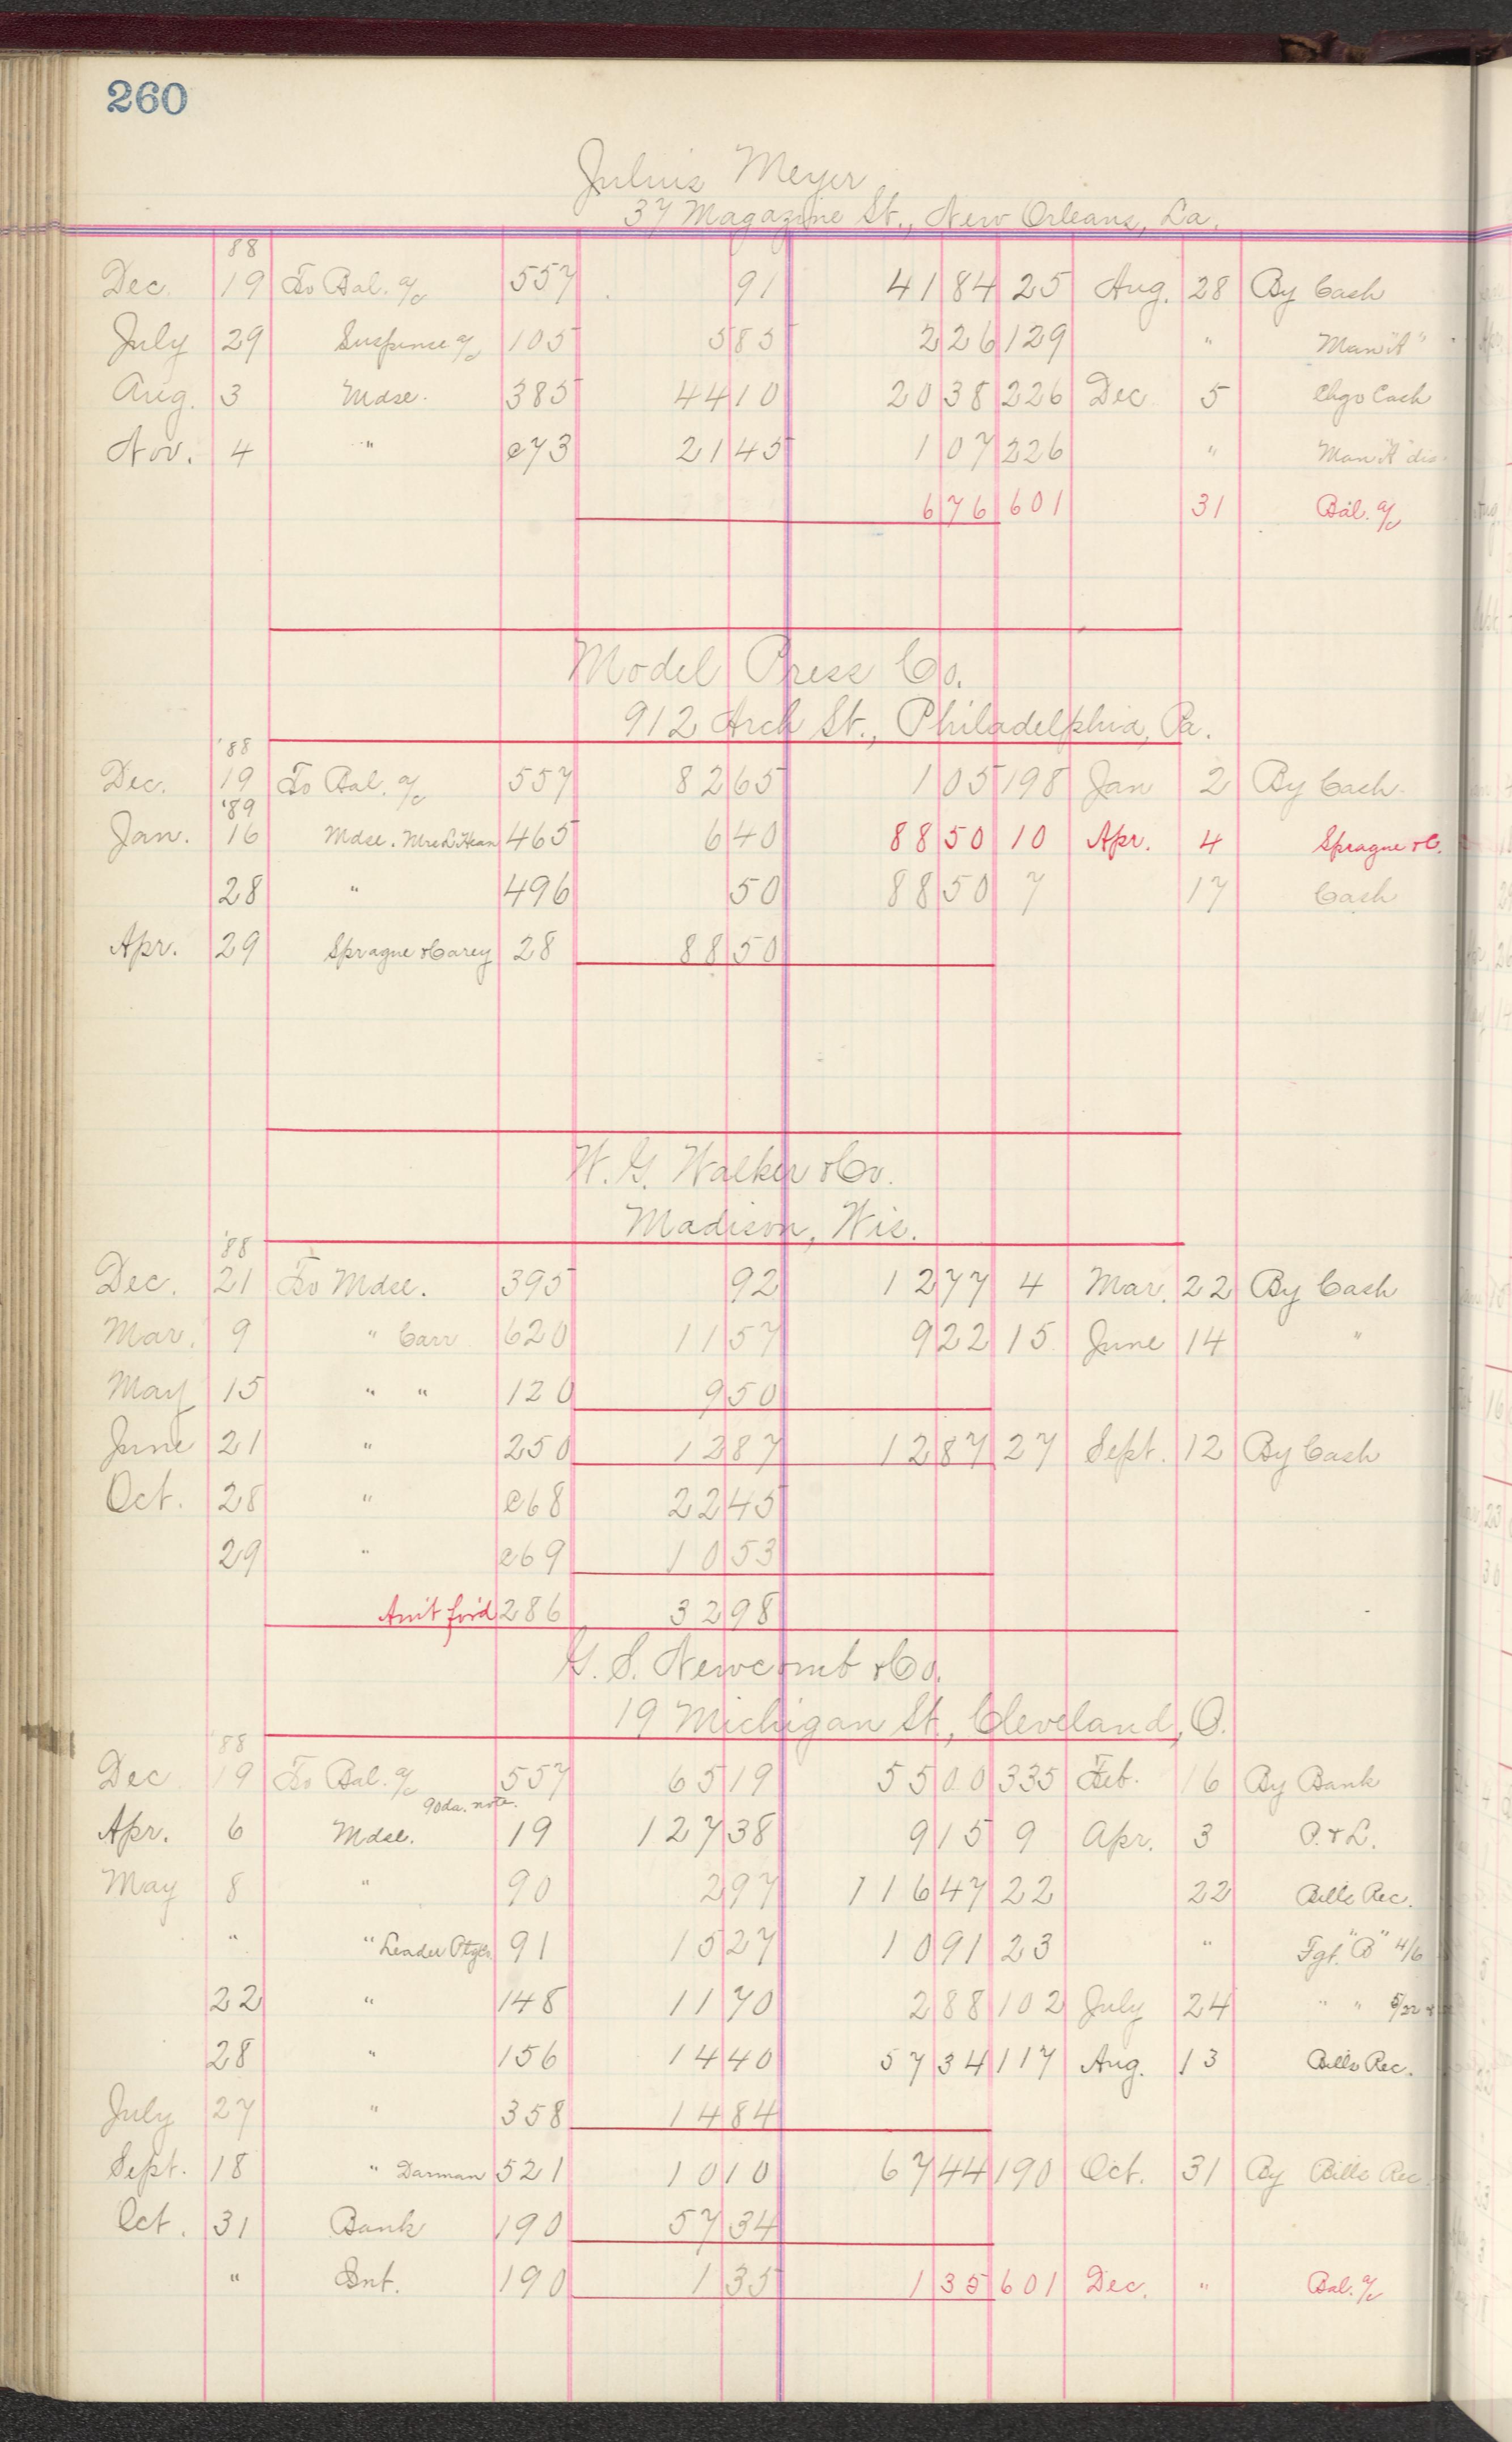 260
Julius Meyer
37 Magazine St., New Orleans, La.
88
Dec. 19 To Bal. a/c 557 91 41 84 25 Aug. 28 By Cash
July 29 Suspense a/c 105 5 85 2 26 129 " Man "A"
Aug. 3 Mdse. 385 44 10 20 38 226 Dec 5 Chgo Cash
Nov. 4 " c73 21 45 1 07 226 " Man "A" dis.
6 76 601 31 Bal. a/c
Model Press Co.
912 Arch St., Philadelphia, Pa.
'88
Dec. 19 To Bal. a/c 557 82 65 1 05 198 Jan 2 By Cash.
'89
Jan. 16 Mdse. 465 6 40 88 50 10 Apr. 4 Sprague & C.
28 " 496 50 88 50 7 17 Cash
Apr. 29 Sprague & Carey 28 88 50
W. G. Walker & Co.
Madison, Wis.
'88
Dec. 21 To Mdse. 395 92 12 77 4 Mar. 22 By Cash
Mar. 9 " Carr 620 11 57 9 22 15 June 14 "
May 15 " " 120 9 50
June 21 " 250 12 87 12 87 27 Sept. 12 By Cash
Oct. 28 " c68 22 45
29 " c69 10 53
Am't for'd 286 32 98
G. S. Newcomb & Co.
19 Michigan St., Cleveland, O.
'88
Dec 19 To Bal. a/c 557 65 19 55 00 335 Feb. 16 By Bank
90 da. note.
Apr. 6 Mdse. 19 127 38 9 15 9 Apr. 3 P. & L.
May 8 " 90 2 97 116 47 22 22 Bills Rec.
" " Leader Ptg Co 91 15 27 10 91 23 " Fgt. "B" 4/6
22 " 148 11 70 2 88 102 July 24 " " 5/22 &
28 " 156 14 40 57 34 117 Aug. 13 Bills Rec.
July 27 " 358 14 84
Sept. 18 " Darman 521 10 10 67 44 190 Oct. 31 By Bills Rec
Oct. 31 Bank 190 57 34
" Int. 190 1 35 1 35 601 Dec. " Bal. a/c